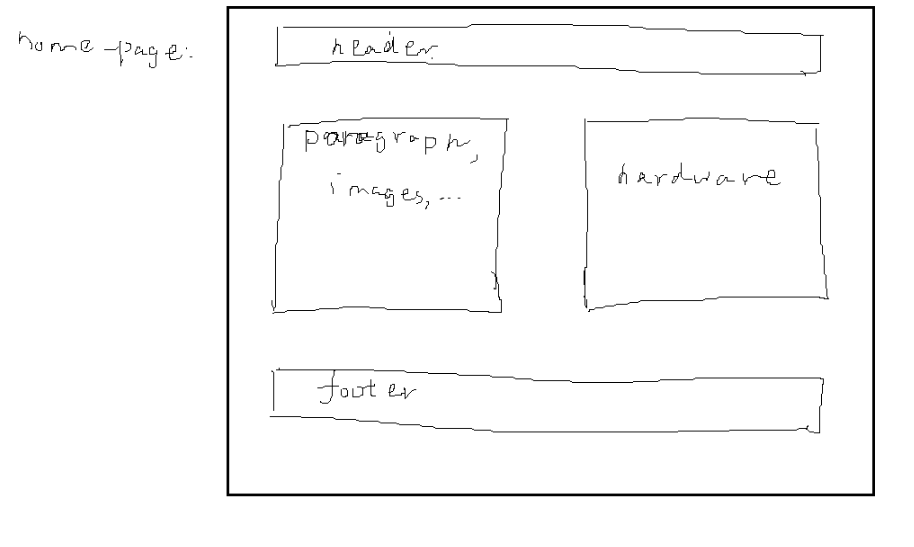 home-page:
header
paragraph,
images, ...
hardware
footer